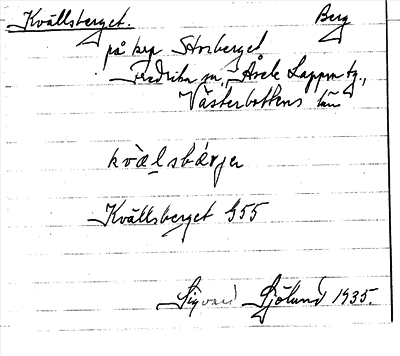 Kvällsberget. Berg
på krp Storberget
Fredrika sn, Åsele Lappm tg.,
Västerbottens län
kvä̀lsbǽrjer
Kvällsberget G55
Sigvard Sjölund 1935.